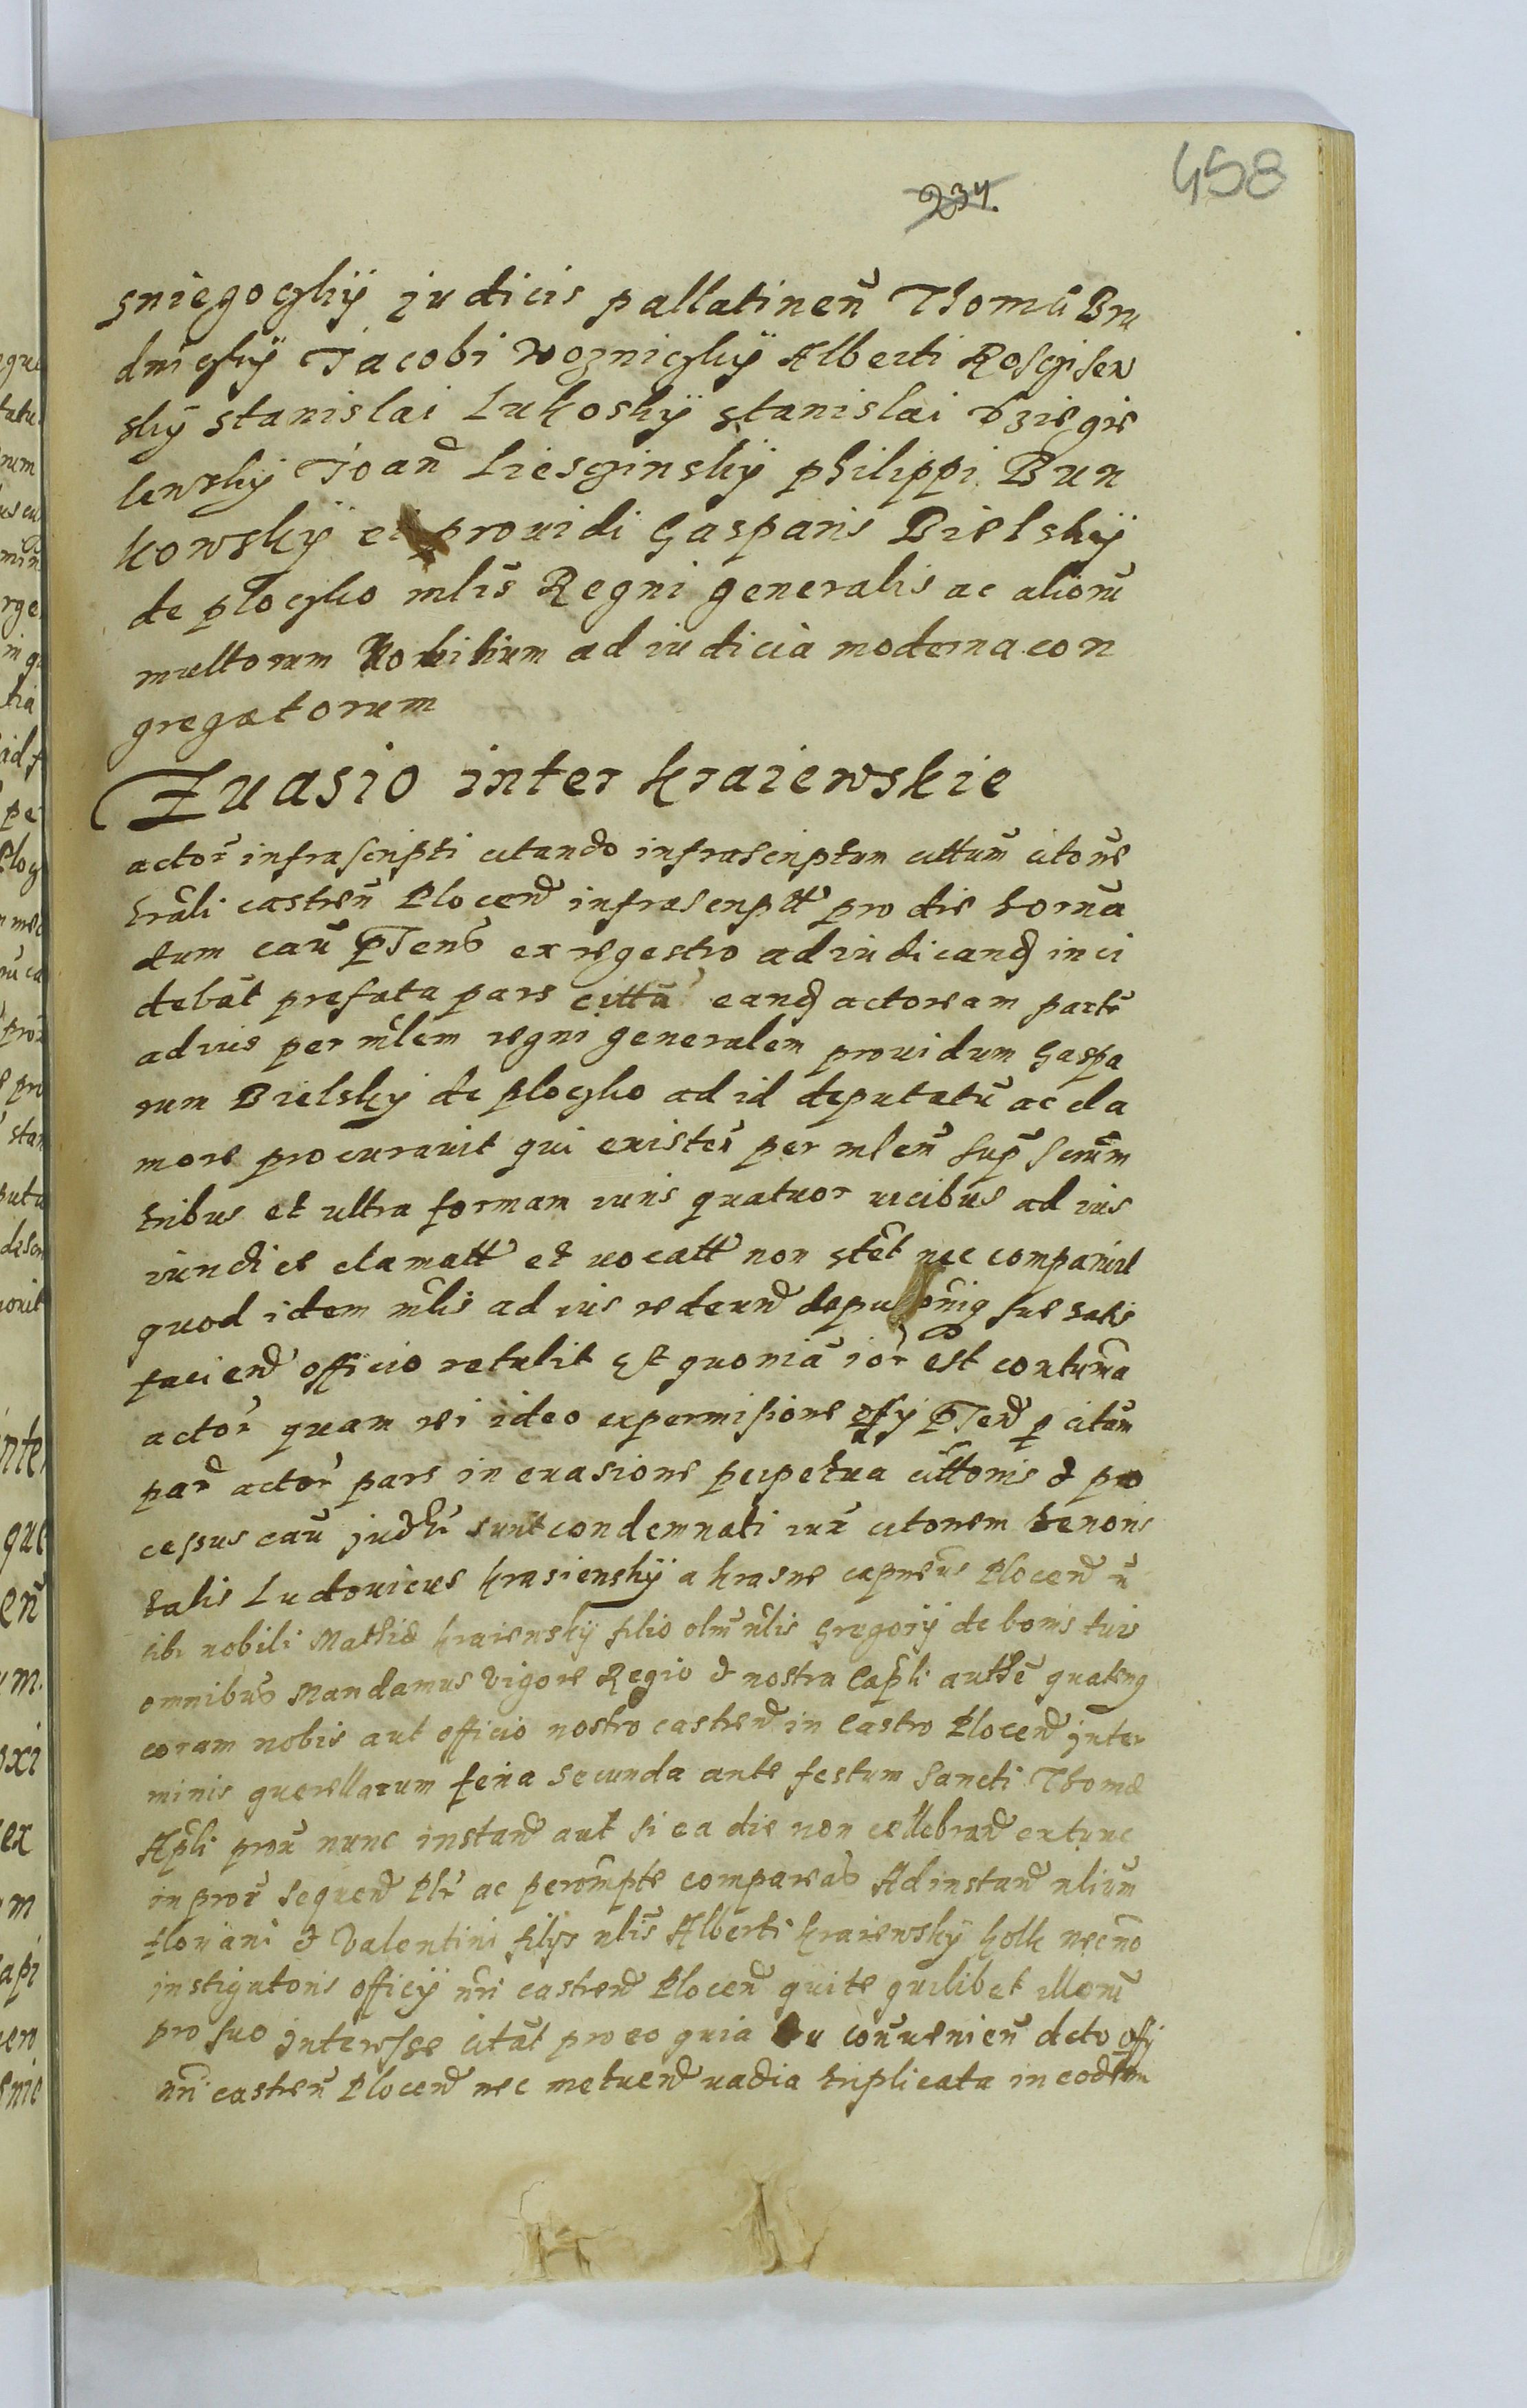 458
234.
sniegoczkÿ judicis pallatineñ Thomæ Bru
dniczkÿ Jacobi wozniczkÿ Alberti Rosczisew
skÿ stanislai Lukoskÿ stanislai dziegie
lewskÿ Joañ Liesczinskÿ philippi Bun
kowskÿ et prouidi Gasparis Bielskÿ
de ploczko mlis Regni generalis ac alioru
multorum Nobilium ad iudicia moderna con
gregatorum
Euasio inter kraiewskie
actor infrascripti citando infrascriptum cittum citone
trali castreñ Plocen infrascriptt pro die horna
dum cau pntens ex regestro ad iudicand inci
debat prefata pars citta eand actoream parte
ad ius per mlem regni generalem prouidum Gaspa
rum Bielskÿ de ploczko ad id deputatu ac cla
more procurauit qui existen per mlem sup scrum
tribus et ultra formam iuris quatuor vicibus ad ius
iundice clamatt et vocatt non stet nec comparuit
quod idem mlis ad ius redeund sue satis
faciend officio retulit Et quonia ior est contuma
actor quam rei ideo ex permisione offy pnten p citam
par actor pars in euasione perpetua cittonis & pro
cessus cau judtr sunt condemnati iux citonem tenoris
talis Ludouicus krasienskÿ a krasne capneus Plocen
tibi nobili Mathiæ kraienskÿ filio olm nlis Gregorÿ de bonis tuis
omnibus Mandamus vigore Regio & nostra Capli authe quateng
coram nobis aut officio nostro castren in Castro Plocen in ter
minis querellarum feria secunda ante festum Sancti Thomæ
Apli prox nunc instand aut si ea die non cellebrand extunc
in prox sequen Plr ac peromptе compareas Ad instand nlium
floriani & Valentini filys nlis Alberti kraiewskÿ kolk necno
instigatoris officÿ nri castren Plocen qui te quilibet illoru
pro suo interesse citat pro eo quia tu conuenien dcto offy
nri castreñ Plocen nec metuend vadia triplicata in eodem